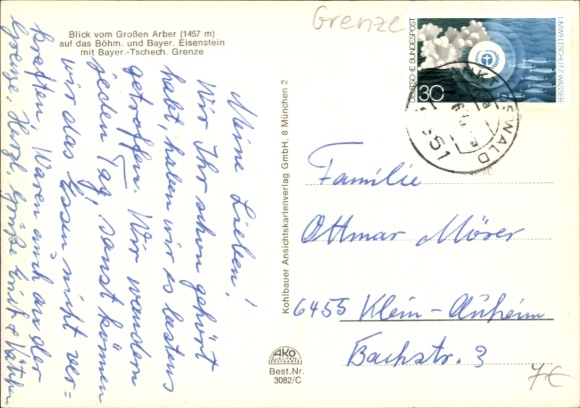 Blick vom Großen Arber (1457 m)
auf das Böhm. und Bayer. Eisenstein
mit Bayer.-Tschech. Grenze
Grenze
UMWELTSCHUTZ: WASSER
DEUTSCHE BUNDESPOST
30
Meine Lieben!
Wie Ihr schon gehört
habt, haben wir es bestens
getroffen. Wir wandern
jeden Tag, sonst können
wir das Essen nicht ver-
kraften. Waren auch an der
Grenze. Herzl. Grüße
Kohlbauer Ansichtskartenverlag GmbH., 8 München 2
AKO
Best.Nr.
3082/C
Familie
Ottmar Möser
6455 Klein-Auheim
Bachstr. 3
7€